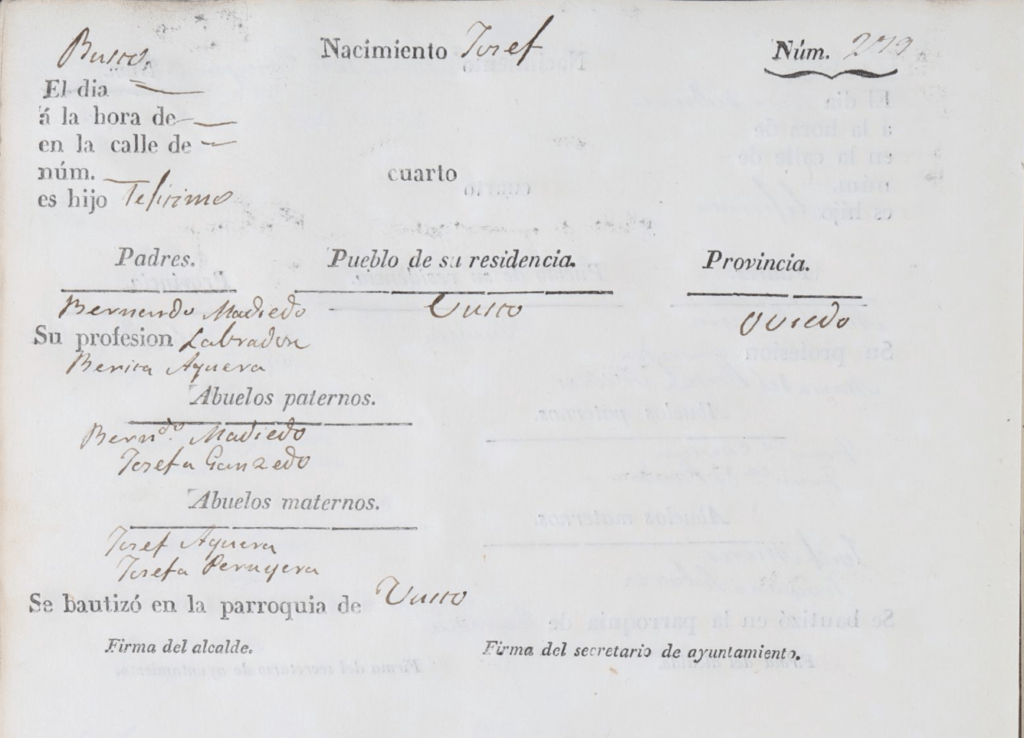 Busco. Nacimiento Josef Núm. 279
El dia
á la hora de
en la calle de
núm. cuarto
es hijo Lejitimo
Padres. Pueblo de su residencia. Provincia.
Bernardo Madiedo Vusco Oviedo
Su profesion Labrador
Benita Aquera
Abuelos paternos.
Bern.do Madiedo
Josefa Ganzedo
Abuelos maternos.
Josef Aquera
Josefa Peruyera
Se bautizó en la parroquia de Vusco
Firma del alcalde. Firma del secretario de ayuntamiento.